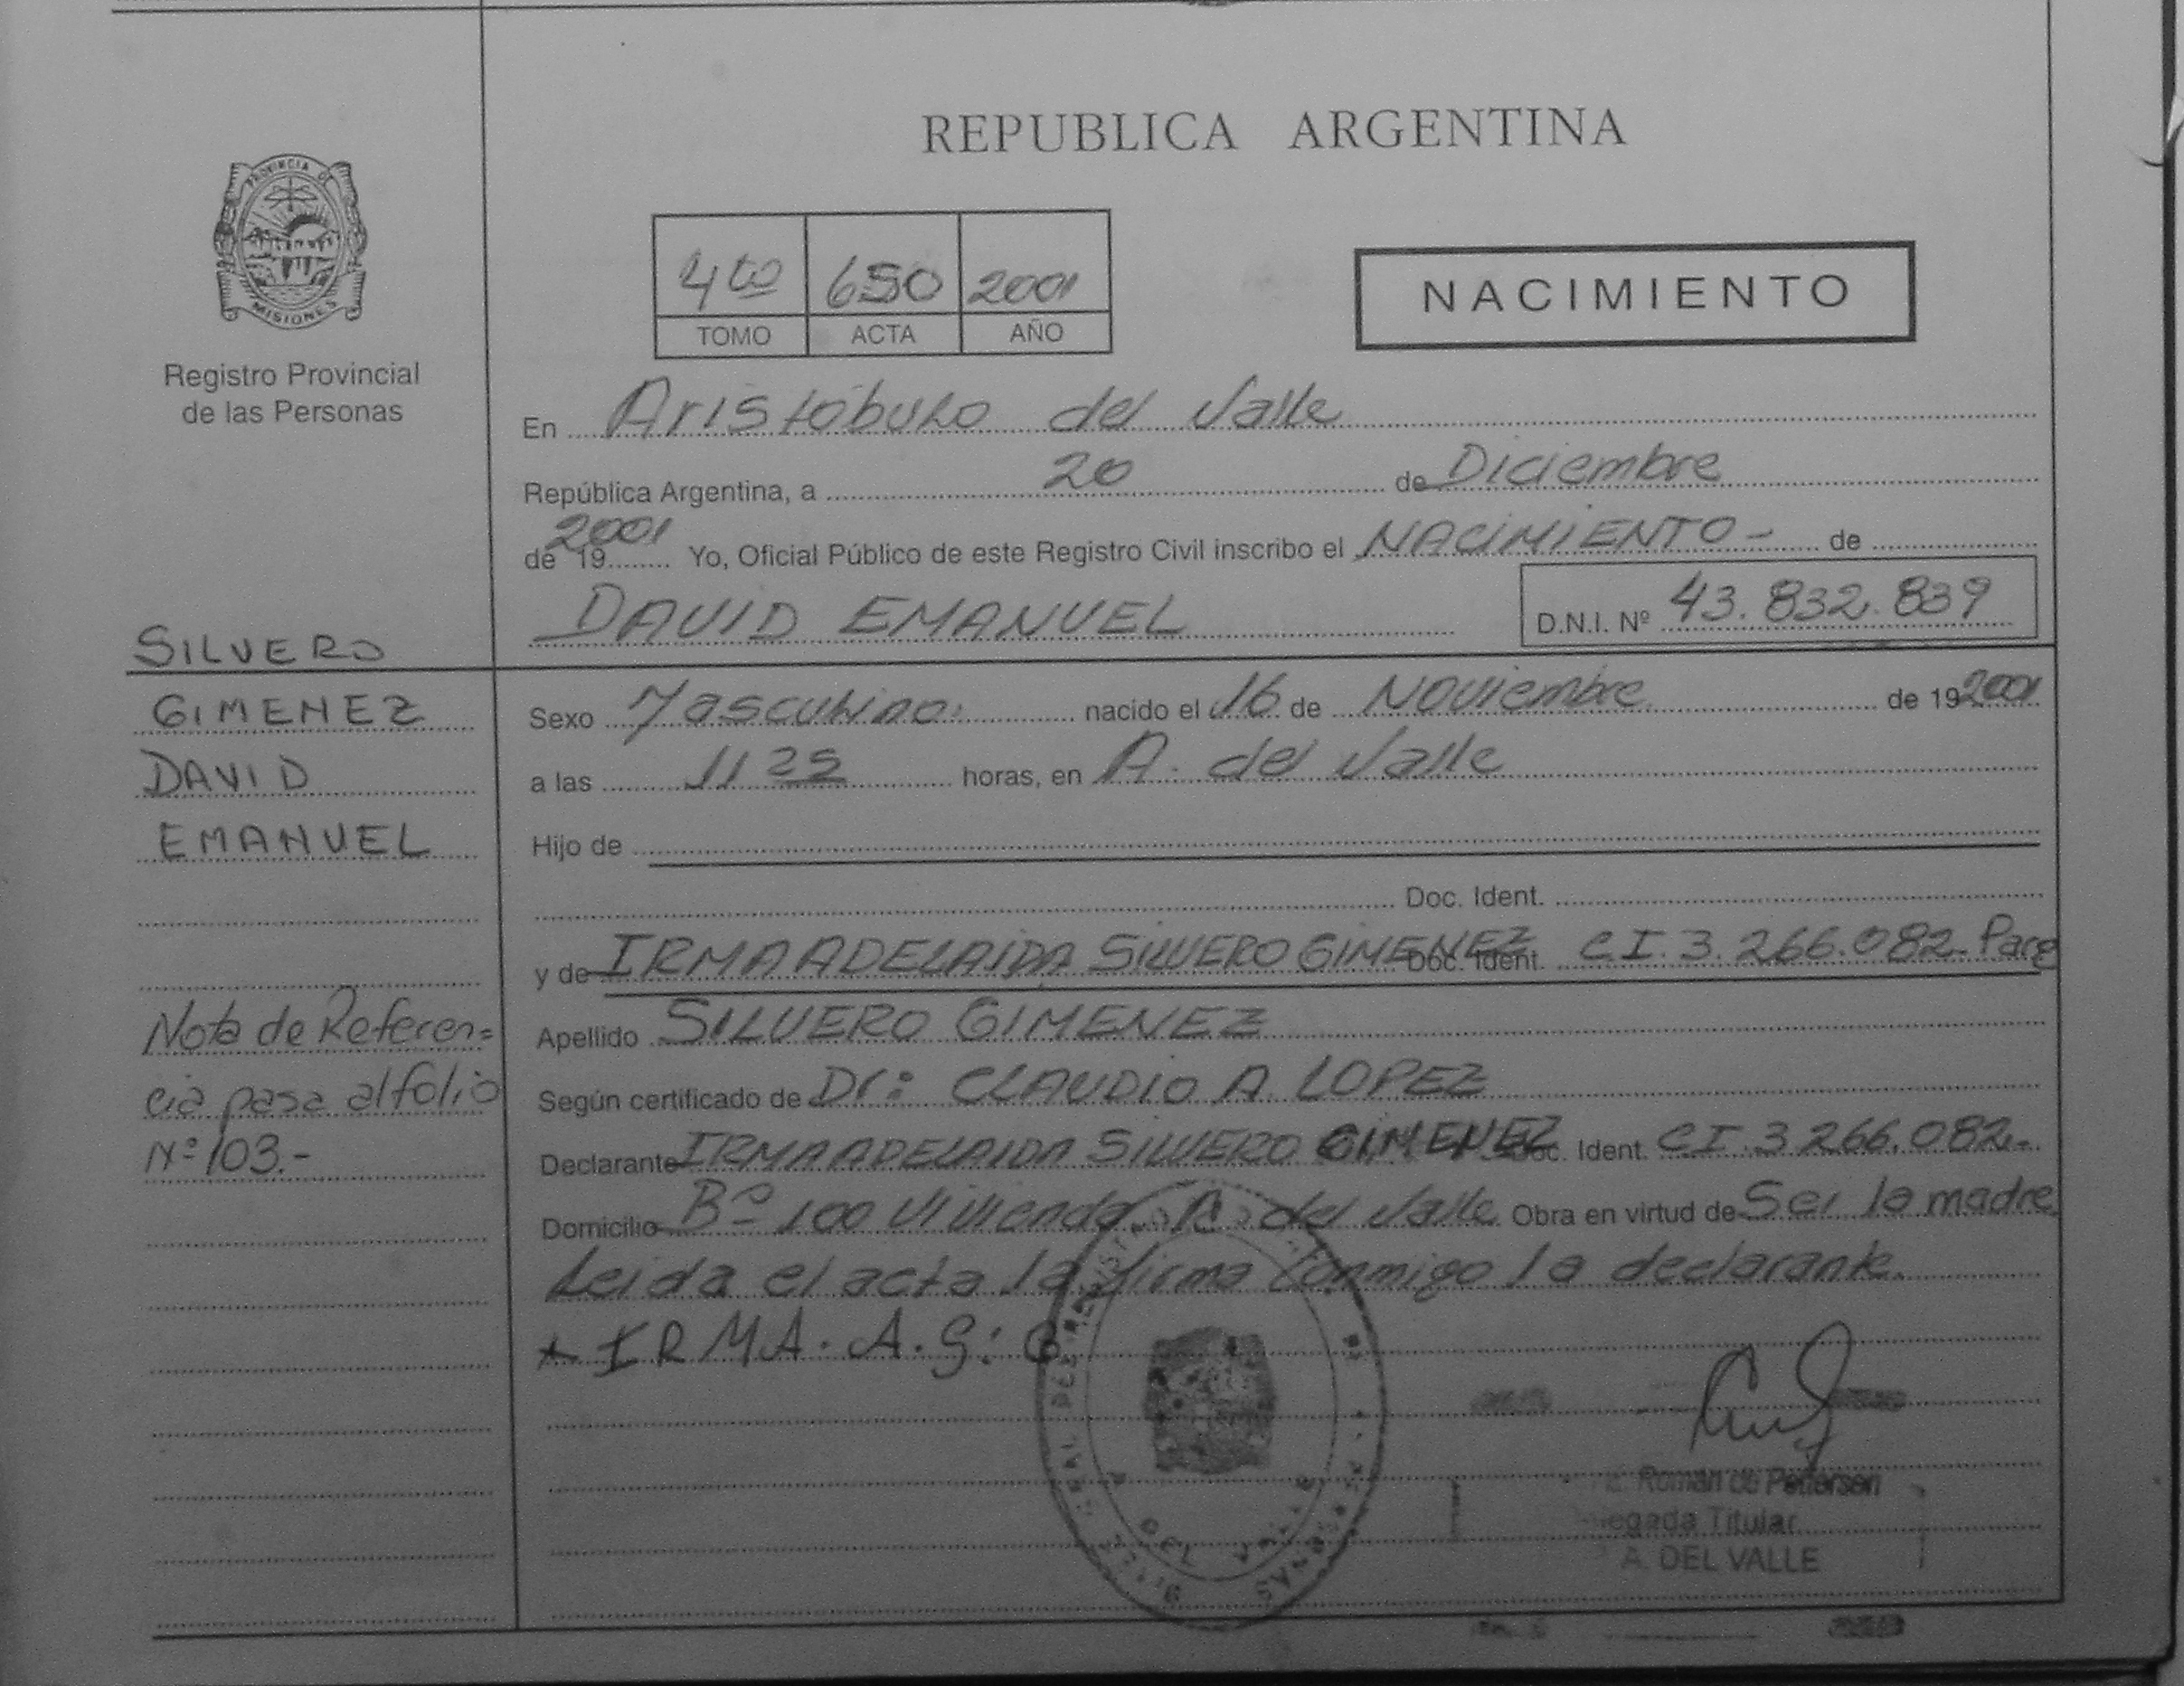 REPUBLICA ARGENTINA
PROVINCIA DE
MISIONES
Registro Provincial
de las Personas
4to 650 2001
TOMO ACTA AÑO
NACIMIENTO
En Aristóbulo del Valle
República Argentina, a 20 de Diciembre
de 19 2001 Yo, Oficial Público de este Registro Civil inscribo el NACIMIENTO - de
DAVID EMANUEL D.N.I. Nº 43.832.839
SILVERO
GIMENEZ
DAVID
EMANUEL
Nota de Referen=
cia pasa al folio
Nº 103.-
Sexo Masculino. nacido el 16 de Noviembre de 19 2001
a las 11 25 horas, en A. del Valle
Hijo de
Doc. Ident.
y de IRMA ADELAIDA SILVERO GIMENEZ Doc. Ident. CI. 3.266.082- Parg
Apellido SILVERO GIMENEZ
Según certificado de Dr: CLAUDIO A. LOPEZ
Declarante IRMA ADELAIDA SILVERO GIMENEZ Doc. Ident. CI. 3 266.082.-
Domicilio Bº 100 Vivienda A. del Valle Obra en virtud de Ser la madre
Leida el acta la firma conmigo la declarante.
IRMA. A. S: G
DEL VALLE
Roman de Petterson
Titular
A. DEL VALLE